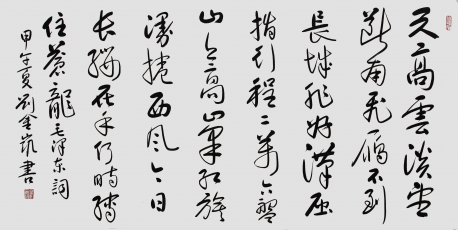 天高雲淡望
斷南飛雁不到
長城非好漢屈
指行程二萬六盤
山上高峯紅旗
漫捲西風今日
長纓在手何時縛
住蒼龍 毛澤東詞
甲午夏劉金書